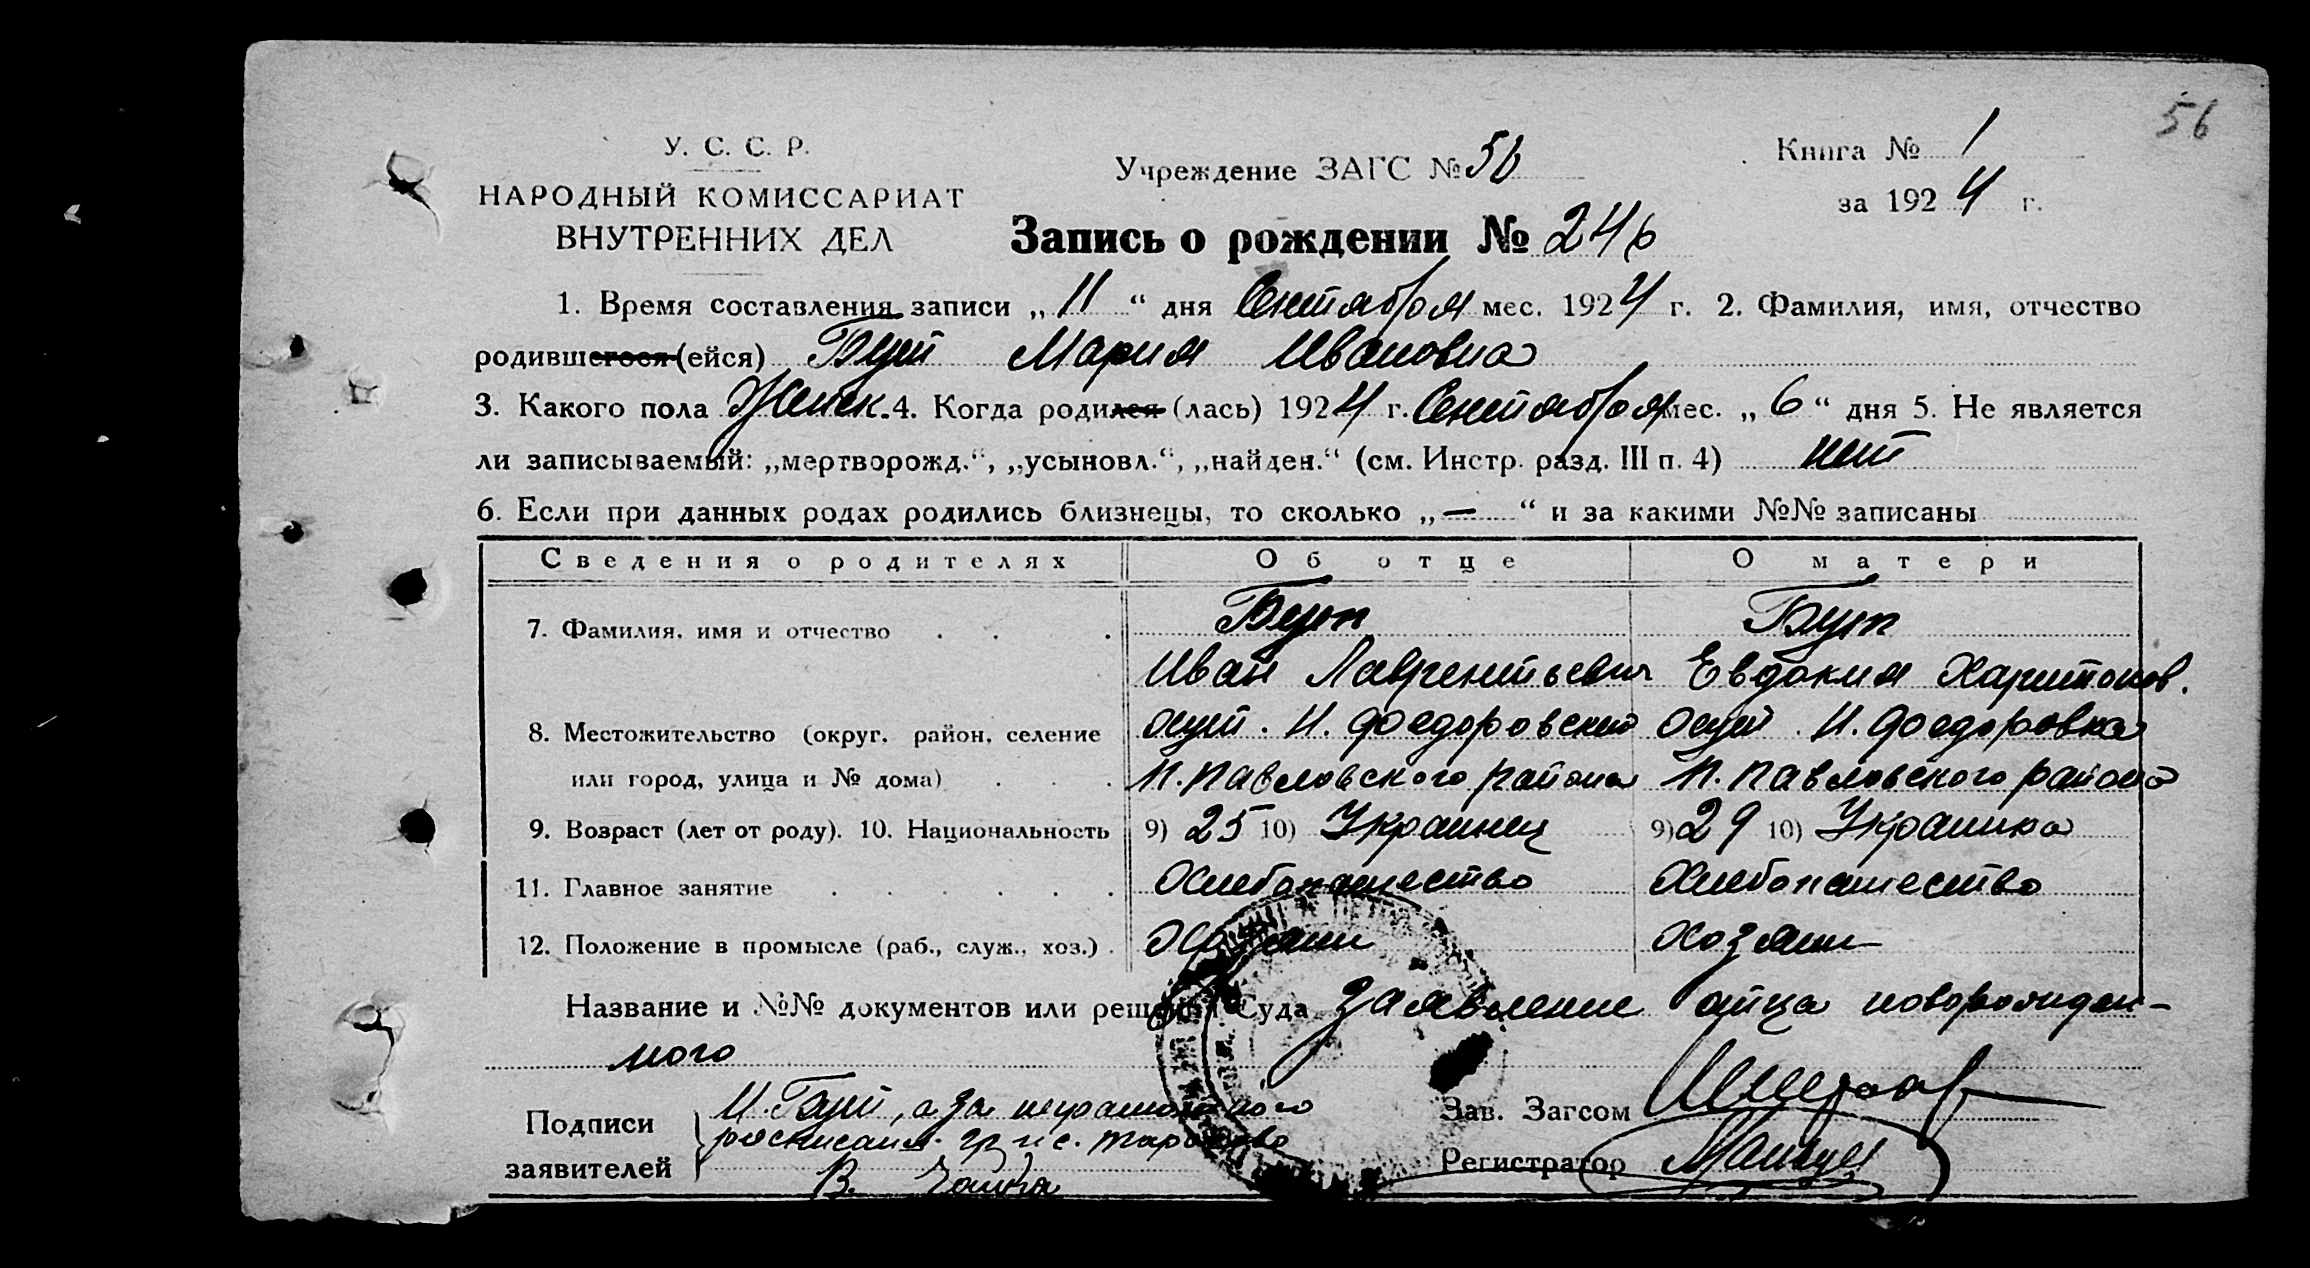 56
У. С. С. Р.
НАРОДНЫЙ КОМИССАРИАТ
ВНУТРЕННИХ ДЕЛ
Учреждение ЗАГС № 56
Книга № 1
за 1924 г.
Запись о рождении № 246
1. Время составления записи „11“ дня Сентября мес. 1924 г. 2. Фамилия, имя, отчество
родившегося (ейся) Бут Мария Ивановна
3. Какого пола Женск. 4. Когда родился (лась) 1924 г. Сентября мес. „6“ дня 5. Не является
ли записываемый: „мертворожд.“, „усыновл.“, „найден.“ (см. Инстр. разд. III п. 4) нет
6. Если при данных родах родились близнецы, то сколько „—“ и за какими №№ записаны
Сведения о родителях Об отце О матери
7. Фамилия, имя и отчество . . .
Иван Лаврентьевич Евдокия Харитонов.
8. Местожительство (округ, район, селение Н. Федоровский Н. Федоровка
или город, улица и № дома) . . . П. Павловского района П. Павловского района
9. Возраст (лет от роду). 10. Национальность 9) 25 10) Украинец 9) 29 10) Украинка
11. Главное занятие . . . . . . Хлебопашество Хлебопашество
12. Положение в промысле (раб., служ., хоз.) . Хозяин Хозяин
Название и №№ документов или решения Суда Заявление отца новорожден-
ного
Подписи заявителей
И. Бут, а за неграмотного
расписался гр. с.
В.
Зав. Загсом
Регистратор